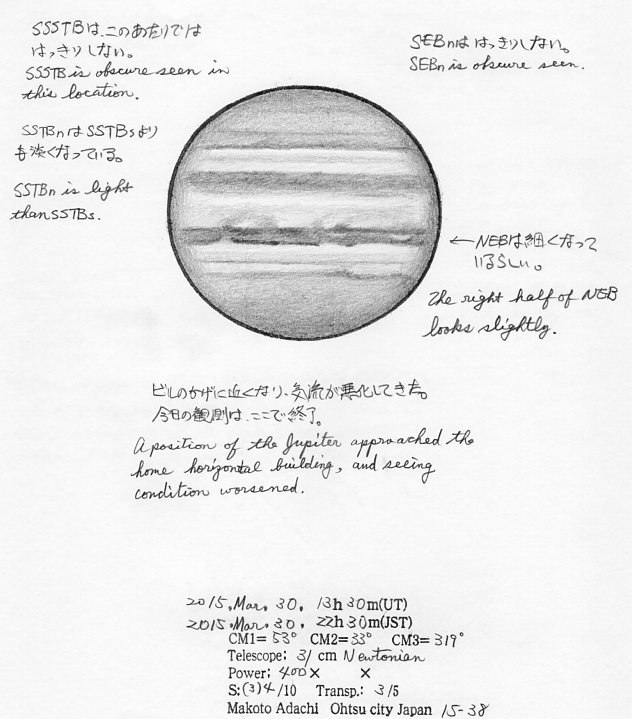 SSSTBは、このあたりでは
はっきりしない。
SSSTB is obscure seen in
this location.
SEBnははっきりしない。
SEBn is obscure seen.
SSTBnはSSTBsより
も淡くなっている。
SSTBn is light
than SSTBs.
←NEBは細くなって
いるらしい。
The right half of NEB
looks slightly.
ビルのかげに近くなり、気流が悪化してきた。
今日の観測は、ここで終了。
A position of the Jupiter approached the
home horizontal building, and seeing
condition worsened.
2015, Mar, 30, 13h 30m(UT)
2015, Mar, 30, 22h 30m(JST)
CM1= 53° CM2= 33° CM3= 319°
Telescope: 31 cm Newtonian
Power: 400× ×
S:(3)4/10 Transp.: 3/5
Makoto Adachi Ohtsu city Japan 15-38